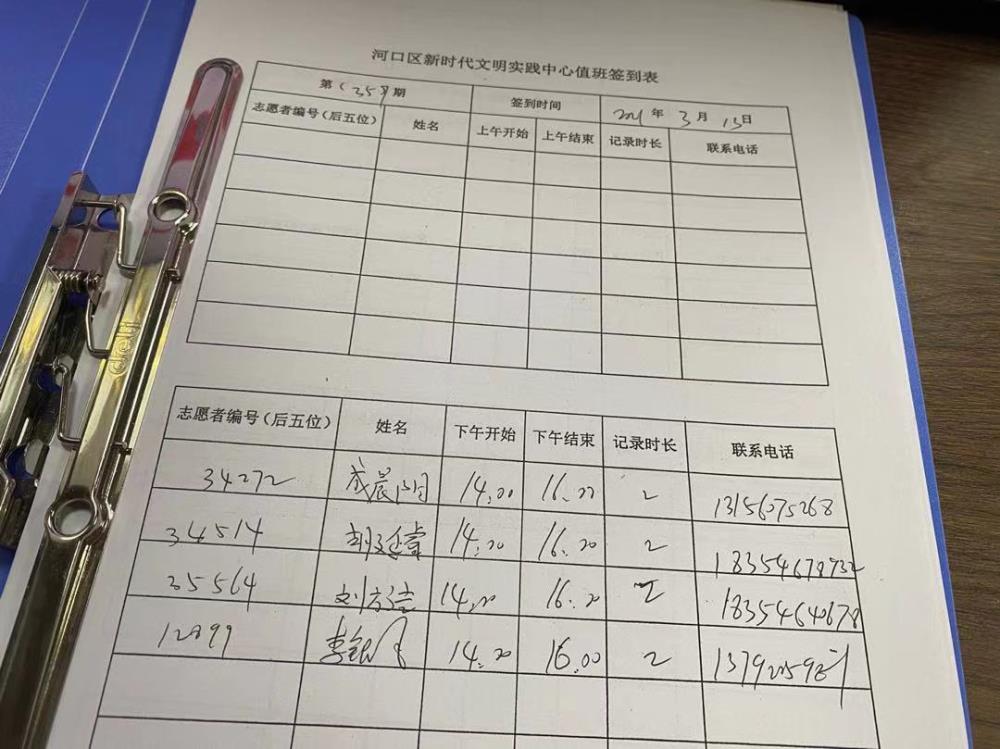 河口区新时代文明实践中心值班签到表
第（35 ）期 签到时间 2021年 3月 13日
志愿者编号（后五位） 姓名 上午开始 上午结束 记录时长 联系电话
志愿者编号（后五位） 姓名 下午开始 下午结束 记录时长 联系电话
34272 成晨 14.00 16.00 2 13156075268
34514 胡廷堂 14.00 16.00 2 18354678932
35564 刘 14.00 16.00 2 18354640678
12899 李银凤 14.00 16.00 2
deli